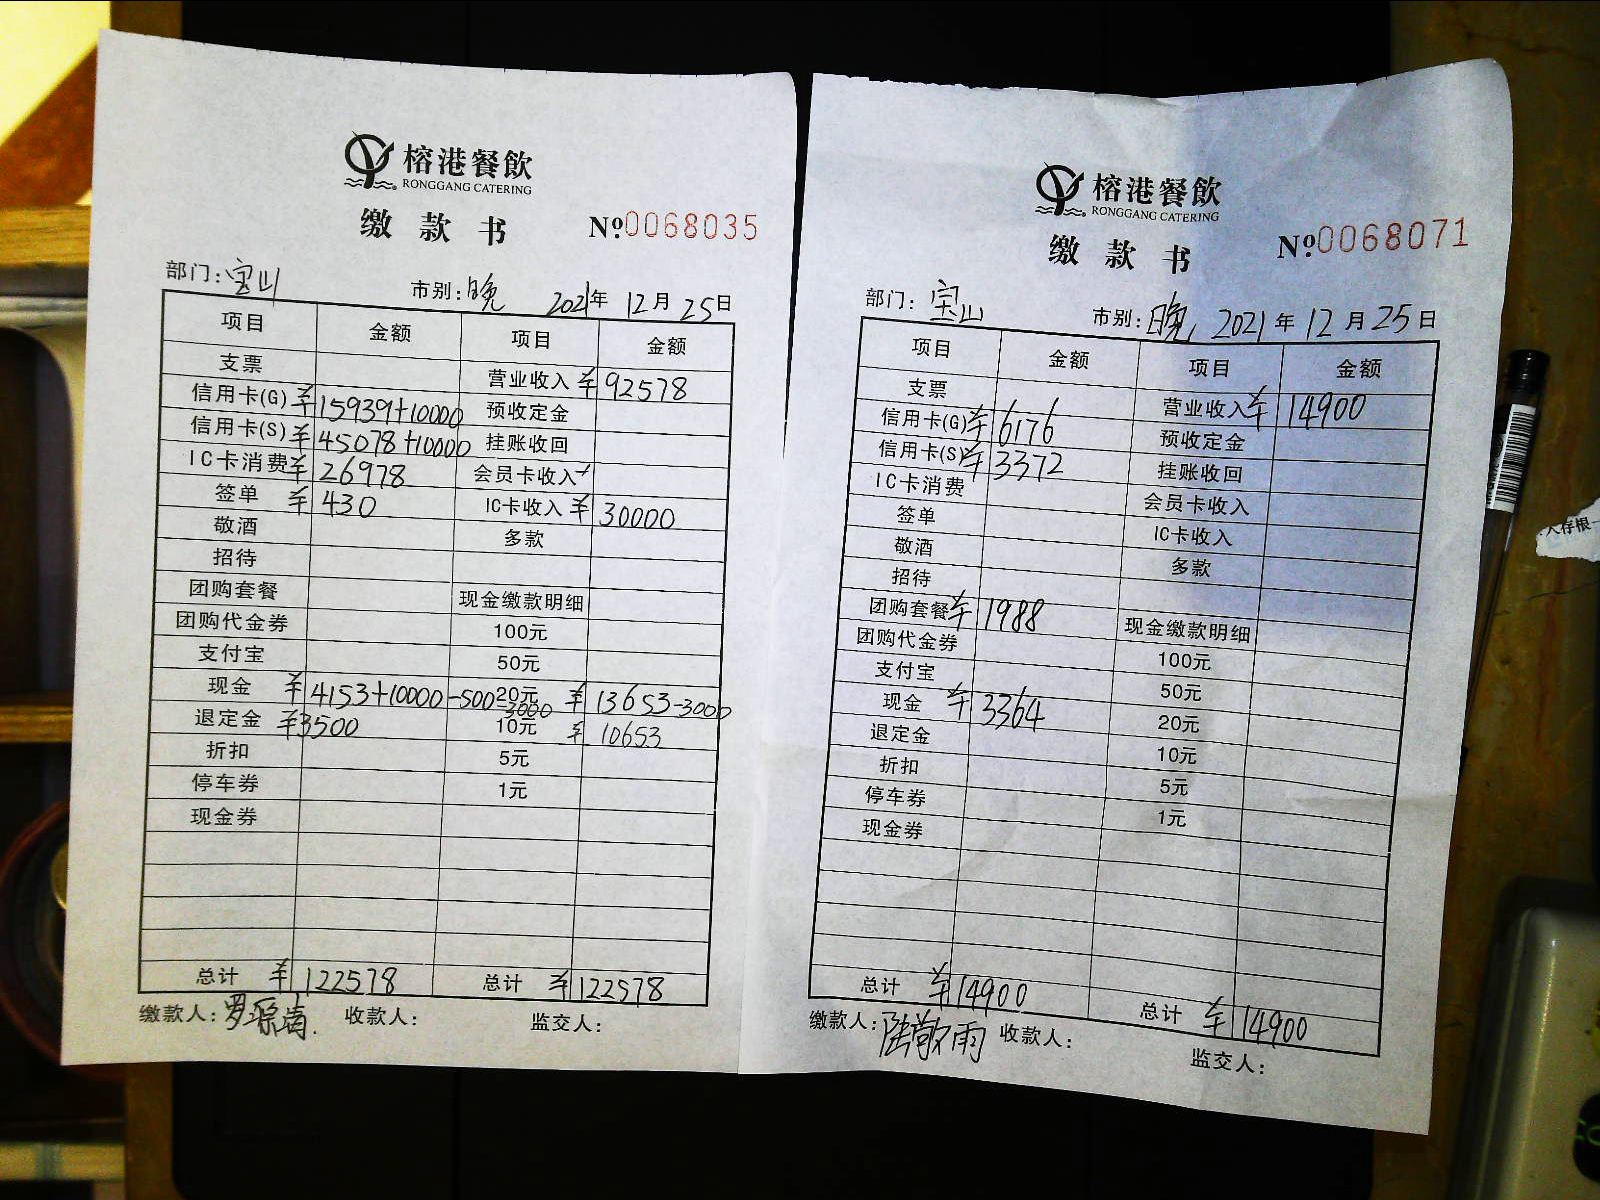 榕港餐飲
RONGGANG CATERING
缴款书 №0068035
部门:宝山 市别:晚 2021年12月25日
项目 金额 项目 金额
支票 营业收入 ¥92578
信用卡(G) ¥15939+10000 预收定金
信用卡(S) ¥45078+10000 挂账收回
IC卡消费 ¥26978 会员卡收入
签单 ¥430 IC卡收入 ¥30000
敬酒 多款
招待
团购套餐 现金缴款明细
团购代金券 100元
支付宝 50元
现金 ¥4153+10000-500-3000 20元 ¥13653-3000
退定金 ¥3500 10元 ¥10653
折扣 5元
停车券 1元
现金券
总计 ¥122578 总计 ¥122578
缴款人: 收款人: 监交人:
榕港餐飲
RONGGANG CATERING
缴款书 №0068071
部门:宝山 市别:晚 2021年12月25日
项目 金额 项目 金额
支票 营业收入 ¥14900
信用卡(G) ¥6176 预收定金
信用卡(S) ¥3372 挂账收回
IC卡消费 会员卡收入
签单 IC卡收入
敬酒 多款
招待
团购套餐 ¥1988 现金缴款明细
团购代金券 100元
支付宝 50元
现金 ¥3364 20元
退定金 10元
折扣 5元
停车券 1元
现金券
总计 ¥14900 总计 ¥14900
缴款人:陆敬雨 收款人: 监交人:
人存根